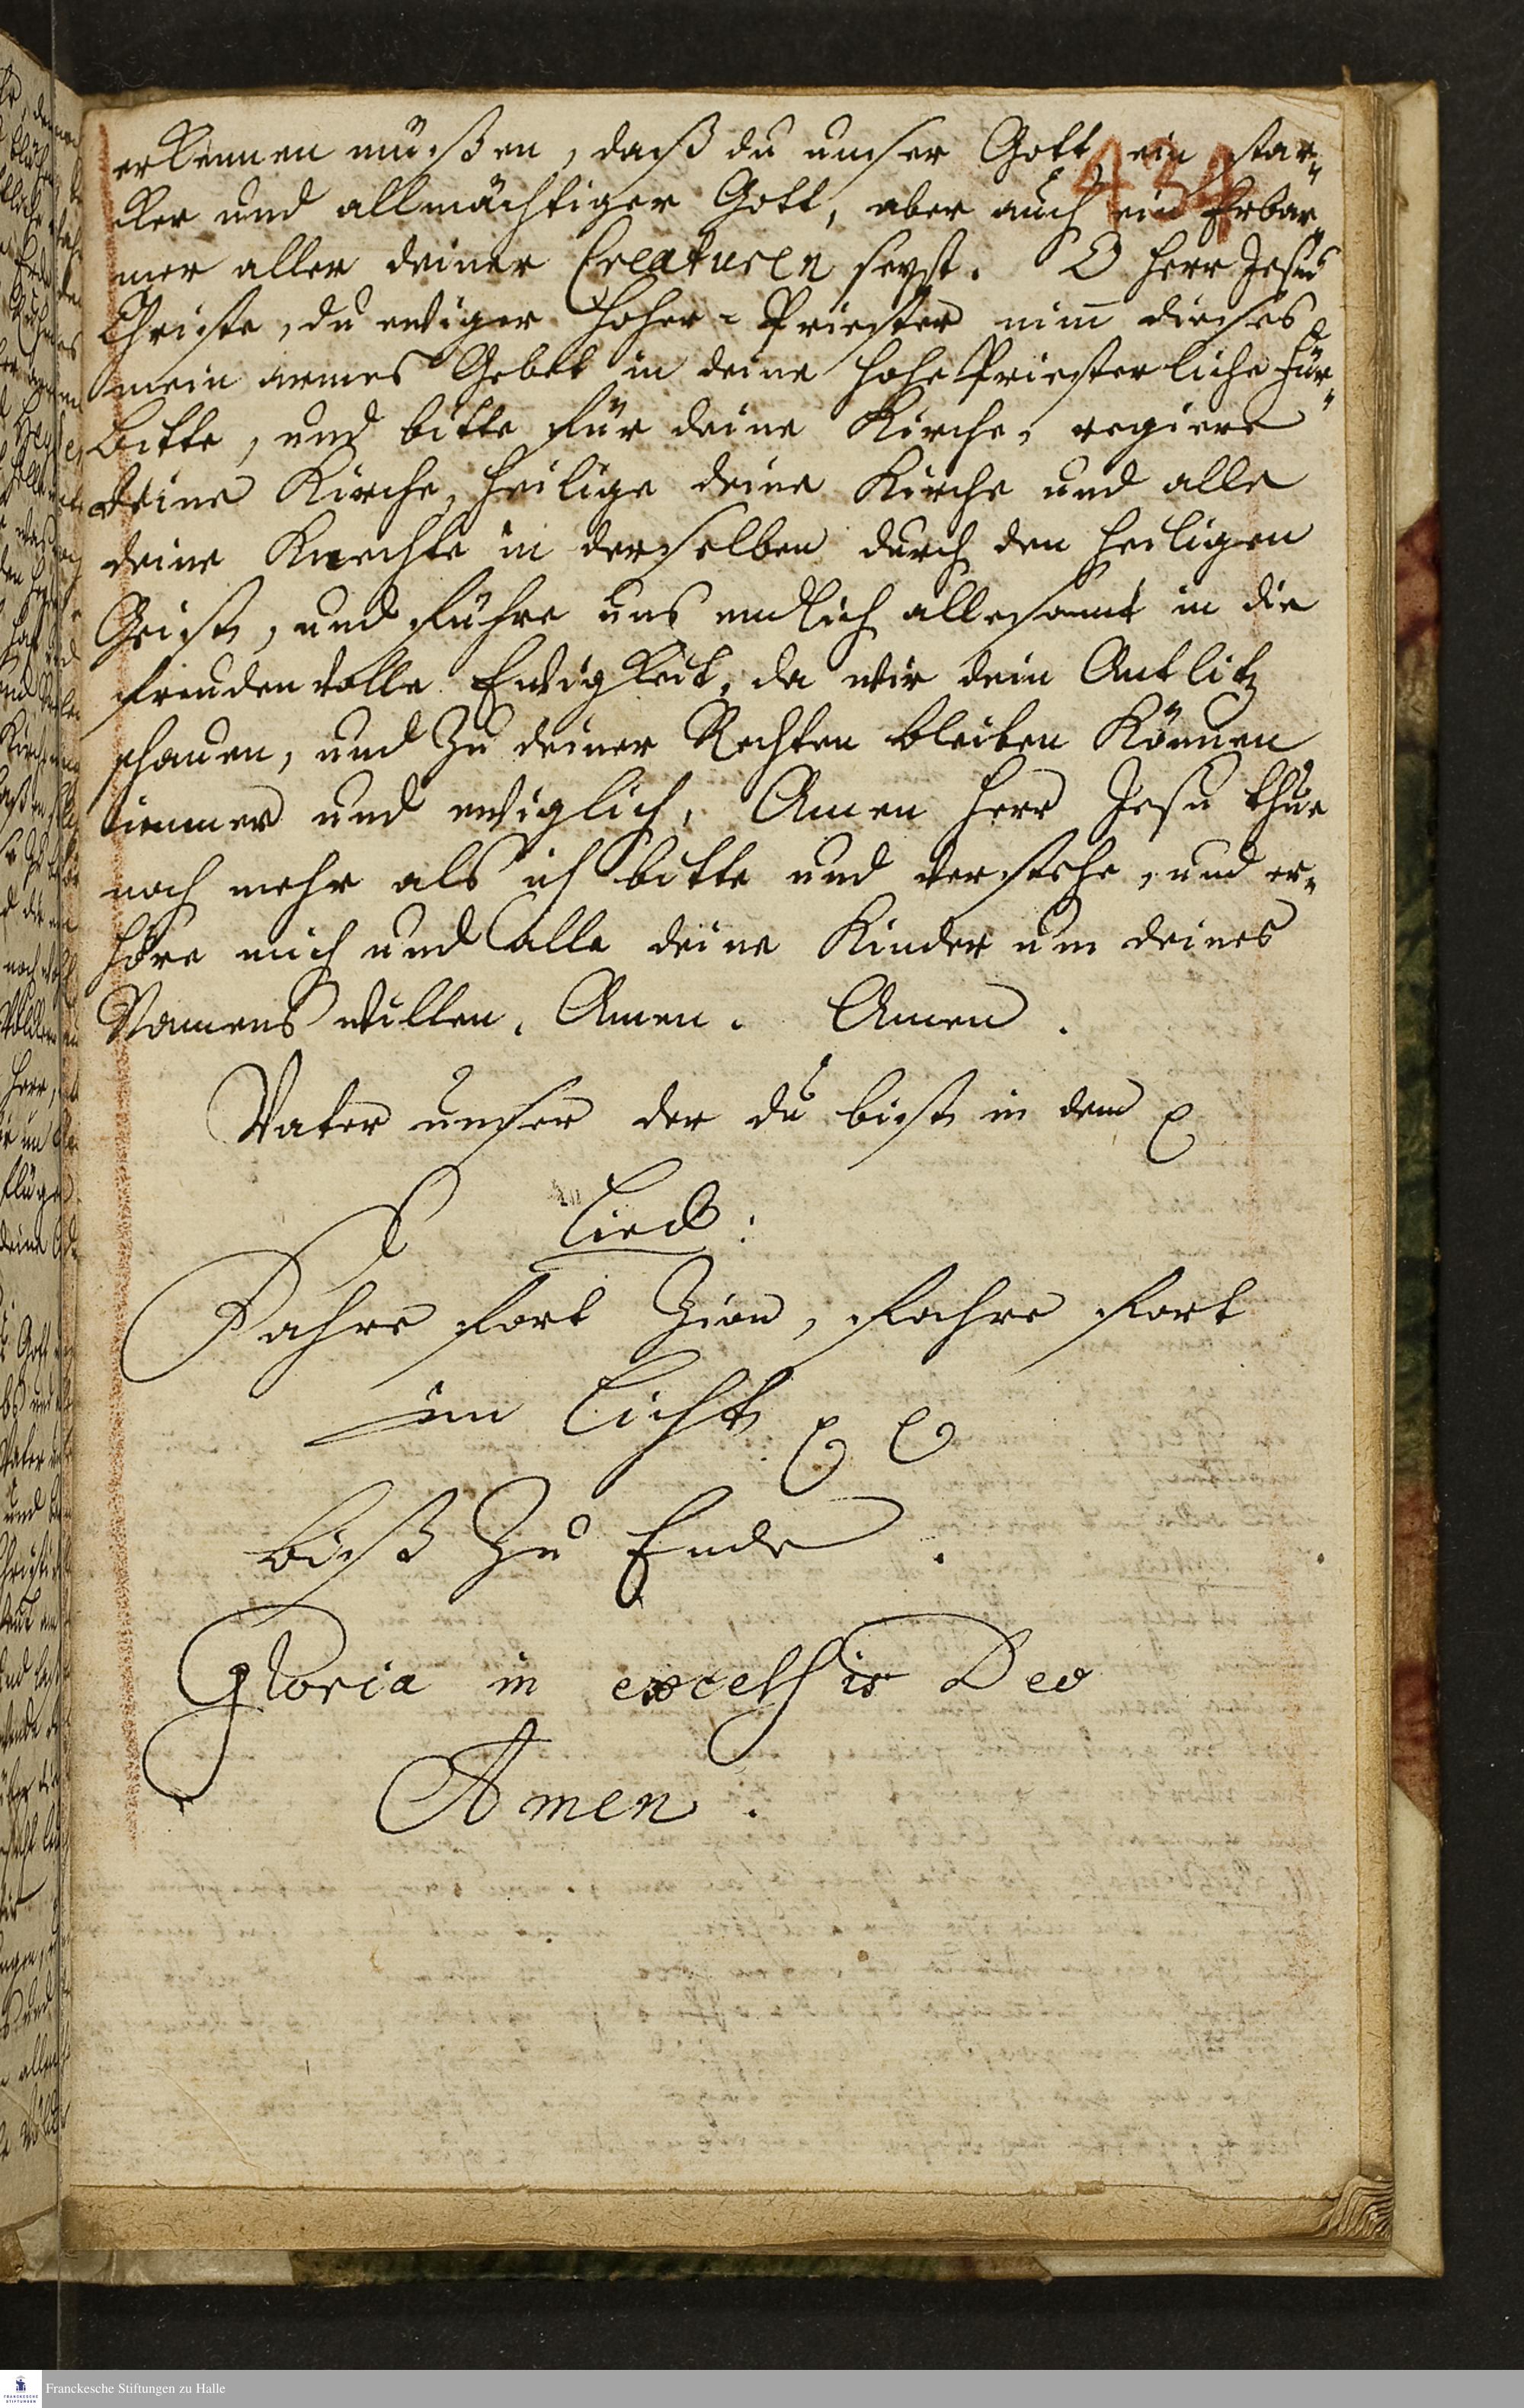 434
erkennen müßen, daß du unser Gott ein star-
ker und allmächtiger Gott, aber auch ein Erbar-
mer aller deiner Creaturen seyst. O Herr Jesus
Christe, du ewiger Hoher-Priester nim̅ dieses
mein armes Gebet in deine Hohepriesterliche Für-
bitte, und bitte für deine Kirche, regiere
deine Kirche, heilige deine Kirche und alle
deine Knechte in derselben durch den heiligen
Geist, und führe uns endlich allesamt in die
freudenvolle Ewigkeit, da wir dein Antlitz
schauen, und zu deiner Rechten bleiben können
immer und ewiglich, Amen Herr Jesu thue
noch mehr als ich bitte und verstehe, und er-
höre mich und alle deine Kinder um deines
Namens willen. Amen. Amen.
Vater unser der du bist in dem
Lied:
Fahre fort Zion, fahre fort
im Licht
biß zu Ende.
Gloria in excelsis Deo
Amen.
Franckesche Stiftungen zu Halle